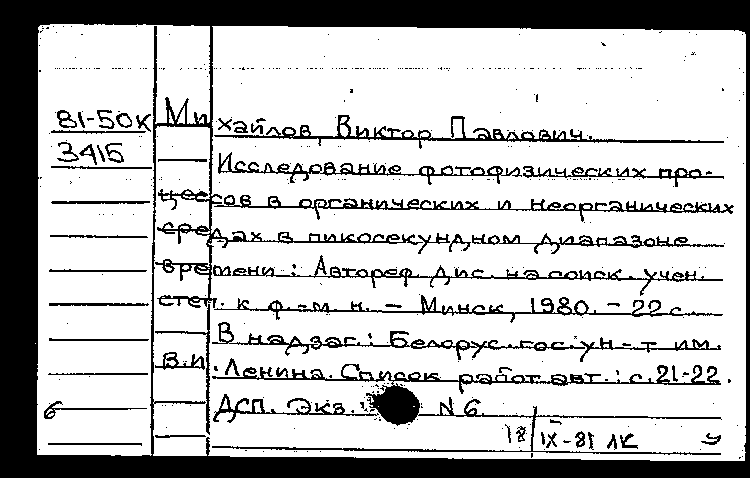 81-50К Михайлов, Виктор Павлович.
3415 Исследование фотофизических про-
цессов в органических и неорганических
средах в пикосекундном диапазоне
времени : Автореф. дис. на соиск. учен.
степ. к. ф.-м. н. - Минск, 1980. - 22 с.
В надзаг.: Белорус. гос. ун-т им.
В.И. Ленина. Список работ авт.: с. 21-22.
б ДСП. Экз.: N 6.
18/IX-81 ЛК